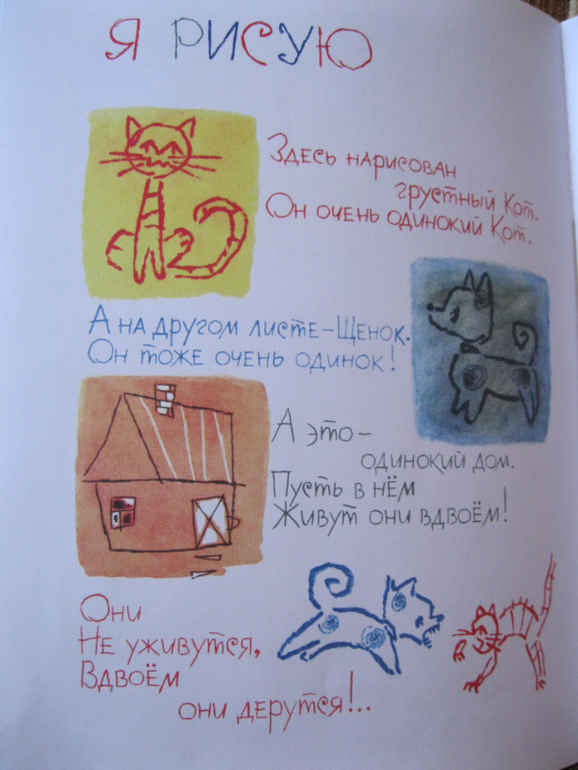 Я РИСУЮ
Здесь нарисован
грустный Кот.
Он очень одинокий Кот.
А на другом листе–Щенок.
Он тоже очень одинок!
А это–
одинокий дом.
Пусть в нём
Живут они вдвоём!
Они
Не уживутся,
Вдвоём
они дерутся!..